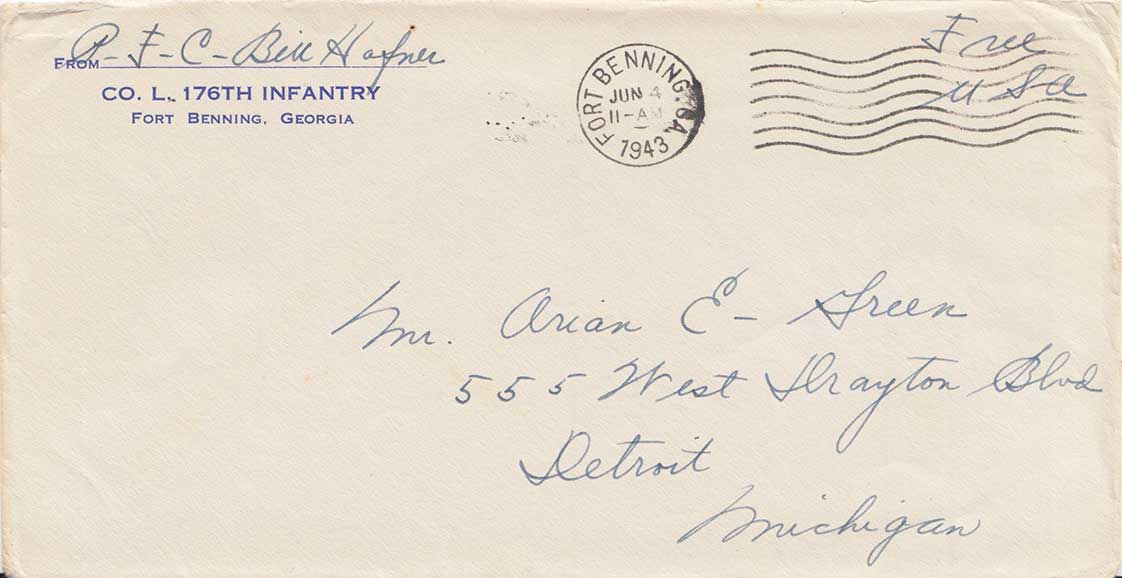 FROM P-F-C-Bill Hafner
CO. L. 176TH INFANTRY
FORT BENNING, GEORGIA
FORT BENNING, GA.
JUN 4
11-AM
1943
Free
U S A
Mr. Arian E- Green
555 West Drayton Blvd
Detroit
Michigan